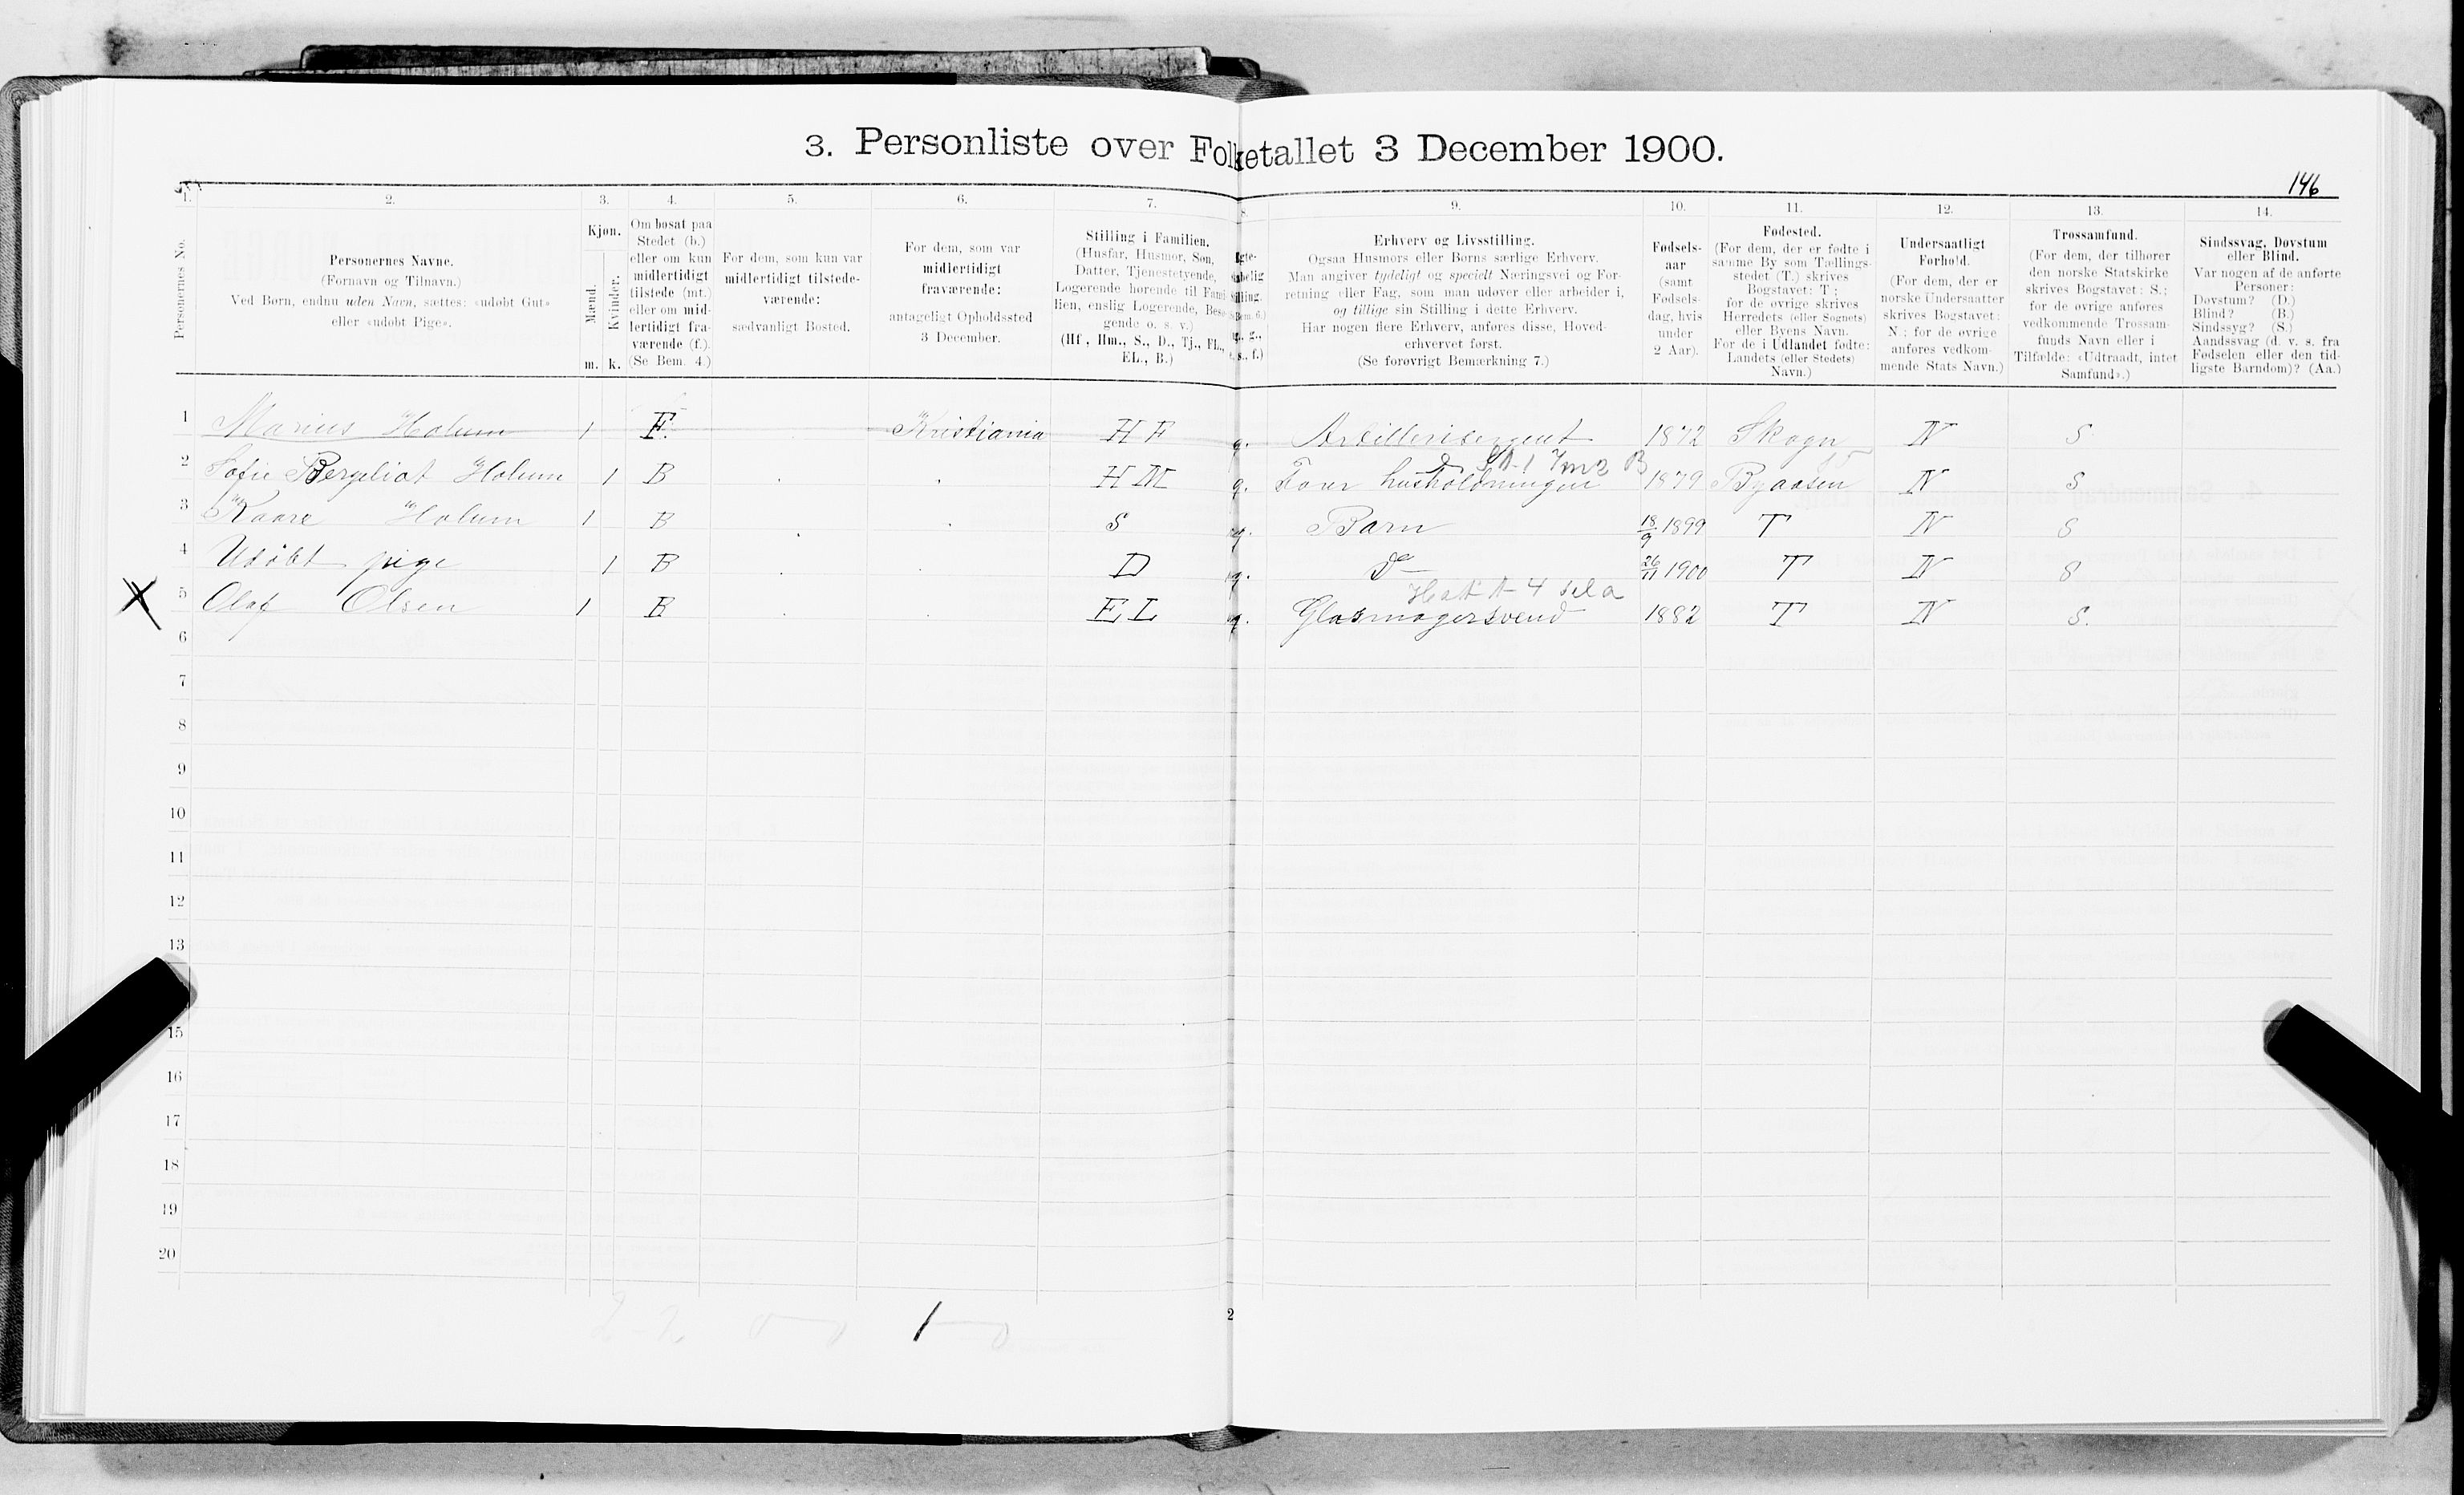 3. Personliste over Folketallet 3 December 1900.
146
1.
Personernes No.
2.
Personernes Navne.
(Fornavn og Tilnavn.)
Ved Børn, endnu uden Navn, sættes: «udøbt Gut»
eller «udøbt Pige».
3.
Kjøn.
Mænd.
Kvinder.
m. k.
4.
Om bosat paa
Stedet (b.)
eller om kun
midlertidigt
tilstede (mt.)
eller om mid-
lertidigt fra-
værende (f.)
(Se Bem. 4.)
5.
For dem, som kun var
midlertidigt tilstede-
værende:
sædvanligt Bosted.
6.
For dem, som var
midlertidigt
fraværende:
antageligt Opholdssted
3 December.
7.
Stilling i Familien.
(Husfar, Husmor, Søn,
Datter, Tjenestetyende,
Logerende hørende til Fami
lien, enslig Logerende, Besø-
gende o. s. v.)
(Hf., Hm., S., D., Tj., FL.,
EL., B.)
9.
Erhverv og Livsstilling.
Ogsaa Husmors eller Børns særlige Erhverv.
Man angiver tydeligt og specielt Næringsvei og For-
retning eller Fag, som man udøver eller arbeider i,
og tillige sin Stilling i dette Erhverv.
Har nogen flere Erhverv, anføres disse, Hoved-
erhvervet først.
(Se forøvrigt Bemærkning 7.)
10.
Fødsels-
aar
(samt
Fødsels-
dag, hvis
under
2 Aar).
11.
Fødested.
(For dem, der er fødte i
samme By som Tællings-
stedet (T.) skrives
Bogstavet: T;
for de øvrige skrives
Herredets (eller Sognets)
eller Byens Navn.
For de i Udlandet fødte:
Landets (eller Stedets)
Navn.)
12.
Undersaatligt
Forhold.
(For dem, der er
norske Undersaatter
skrives Bogstavet:
N.; for de øvrige
anføres vedkom-
mende Stats Navn.)
13.
Trossamfund.
(For dem, der tilhører
den norske Statskirke
skrives Bogstavet: S.;
for de øvrige anføres
vedkommende Trossam-
funds Navn eller i
Tilfælde: «Udtraadt, intet
Samfund».)
14.
Sindssvag, Døvstum
eller Blind.
Var nogen af de anførte
Personer:
Døvstum? (D.)
Blind? (B.)
Sindssyg? (S.)
Aandssvag (d. v. s. fra
Fødselen eller den tid-
ligste Barndom)? (Aa.)
1 Marius Holum 1 F. Kristiania HF g. Artillerisergeant 1872 Skogn N S
2 Sofie Bergeliot Holum 1 B HM g. Fører husholdningen 1879 Byaasen N S
3 Kaare Holum 1 B S Barn 18/9 1899 T N S
4 Udøbt pige 1 B D do 26/11 1900 T N S
X 5 Olaf Olsen 1 B EL Glasmagersvend 1882 T N S.
6
7
8
9
10
11
12
13
15
16
17
18
19
20
1
2